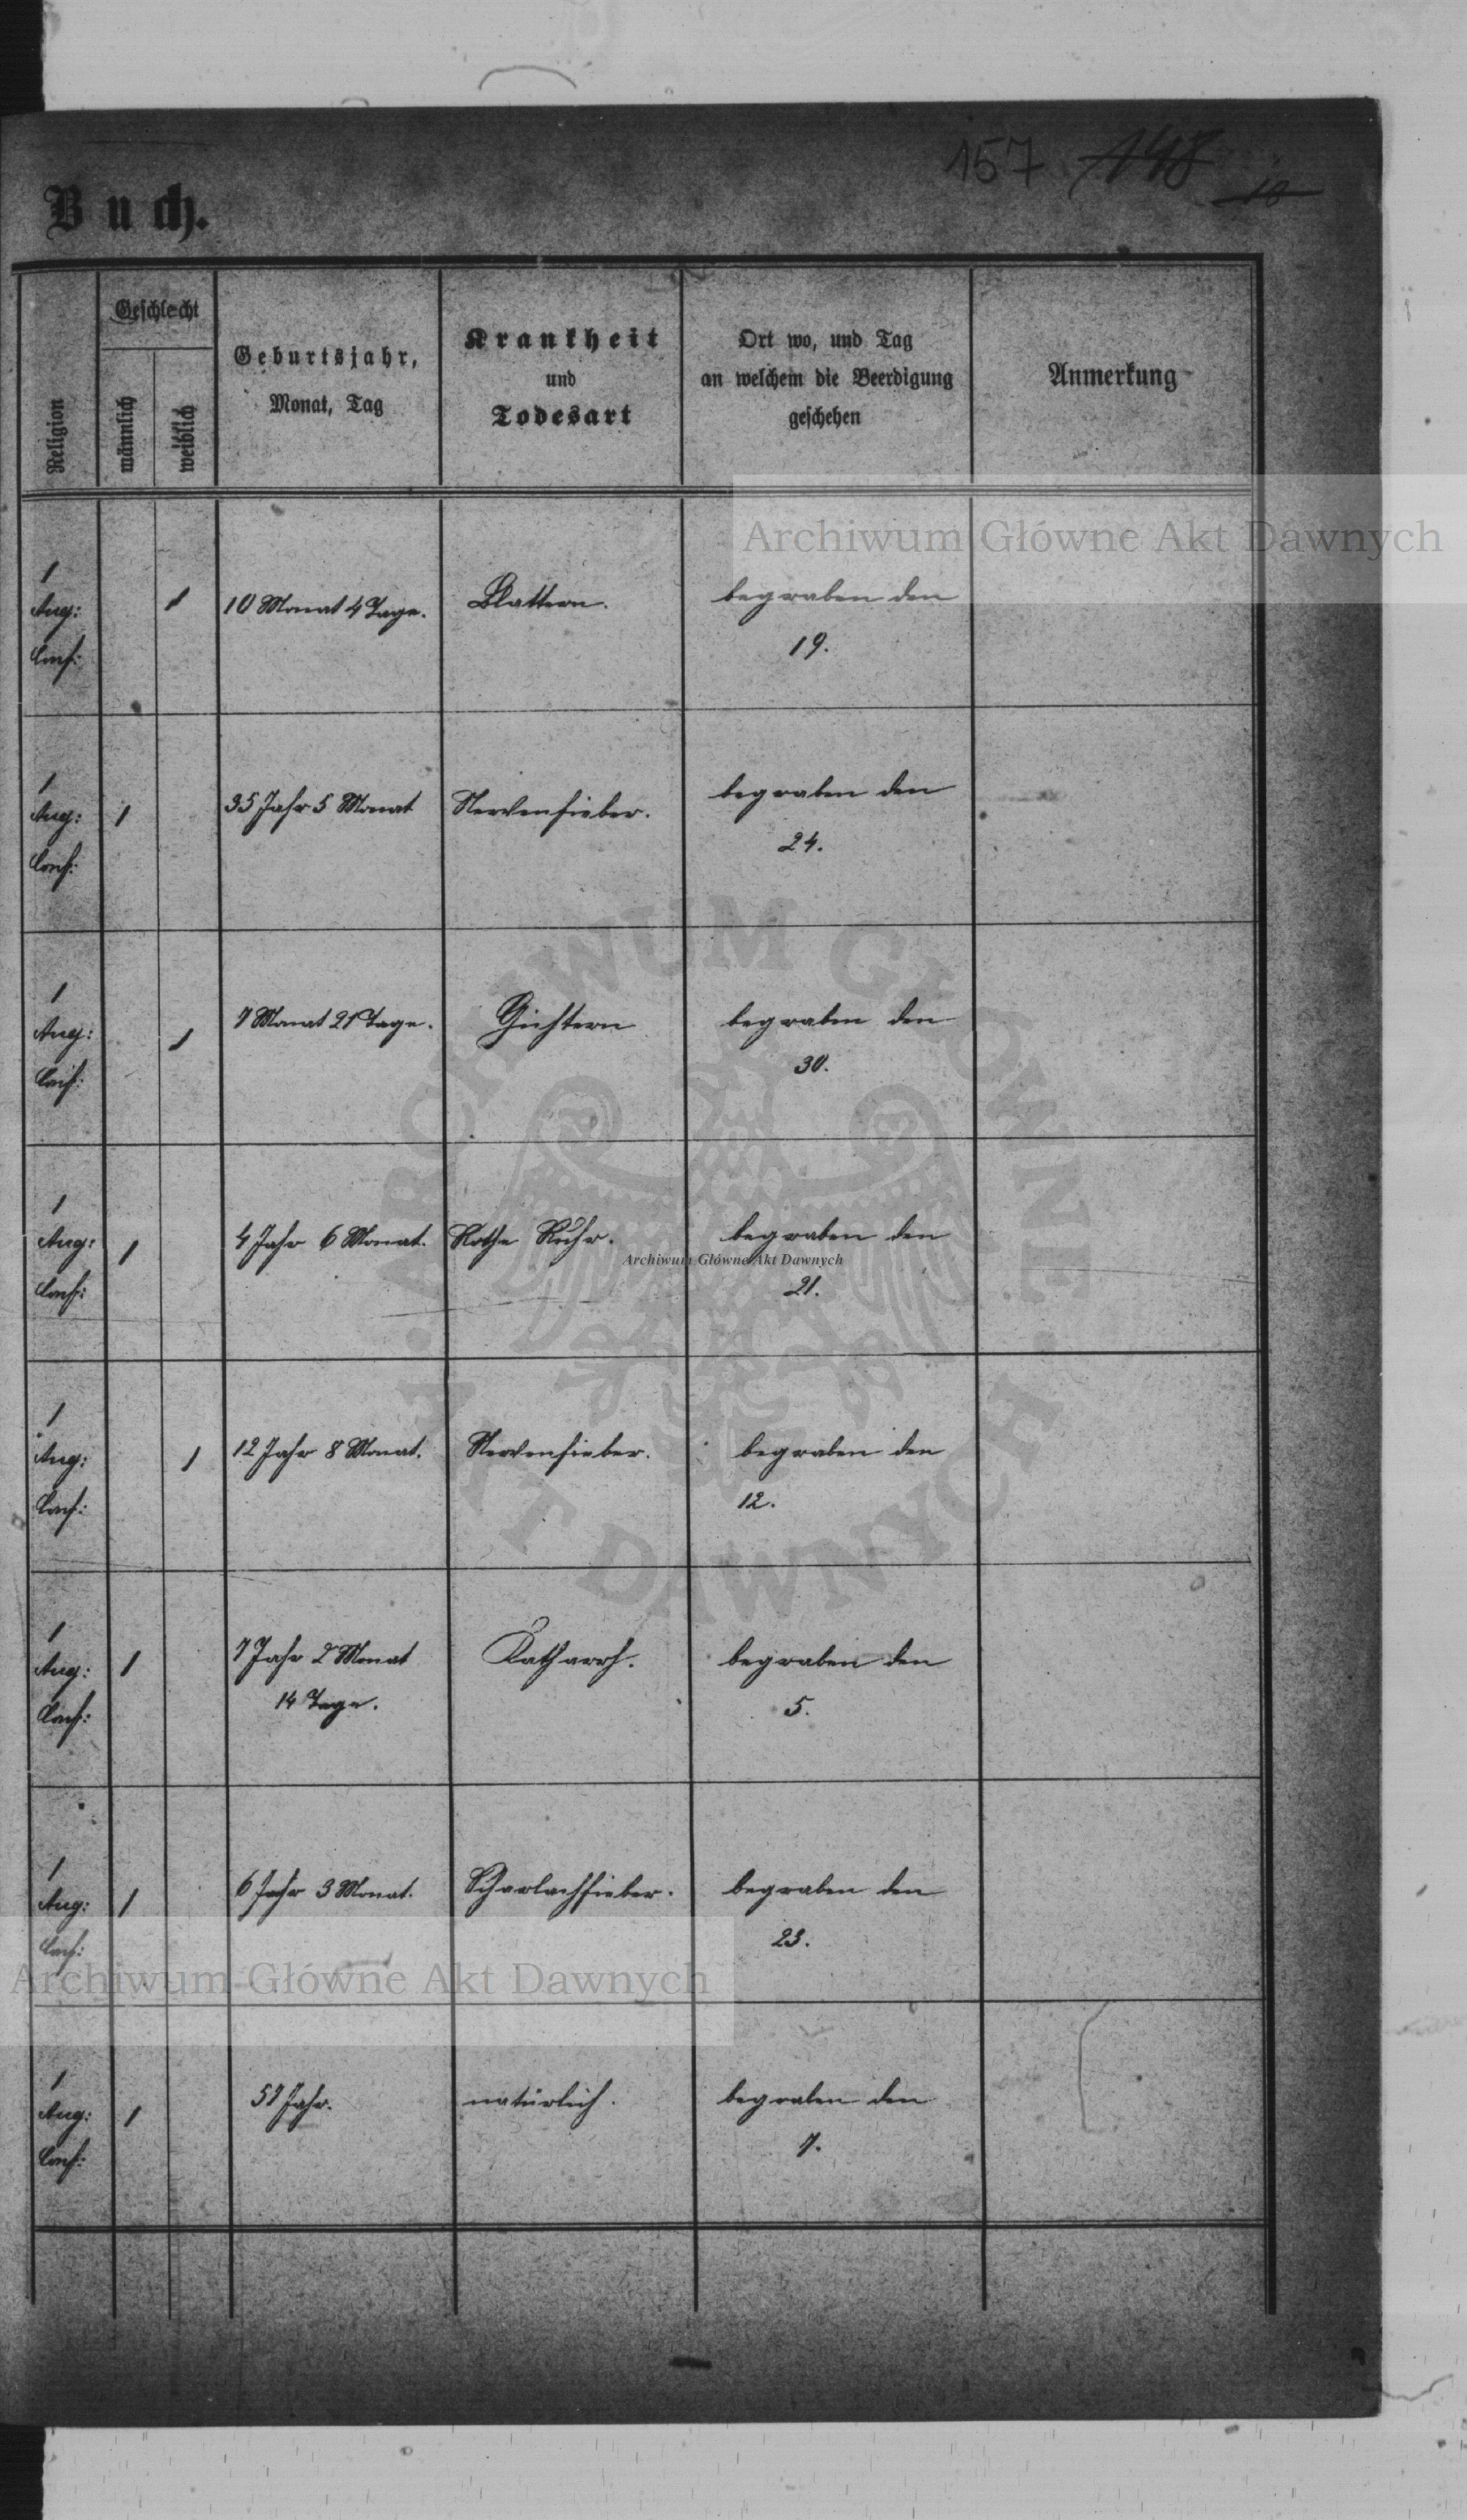 157 148 10
Buch.
Religion
Geschlecht
männlich
weiblich
Geburtsjahr,
Monat, Tag
Krankheit
und
Todesart
Ort wo, und Tag
an welchem die Beerdigung
geschehen
Anmerkung
Archiwum Główne Akt Dawnych
1
Aug:
Conf:
1
10 Monat 4 Tage.
Blattern.
begraben den
19.
1
Aug:
Conf:
1
35 Jahr 5 Monat
Nervenfieber.
begraben den
24.
1
Aug:
Conf:
1
7 Monat 21 Tage.
Gichtern
begraben den
30.
1
Aug:
Conf:
1
4 Jahr 6 Monat.
Rothe Ruhr.
begraben den
21.
Archiwum Główne Akt Dawnych
1
Aug:
Conf:
1
12 Jahr 8 Monat.
Nervenfieber.
begraben den
12.
ARCHIWUM GŁÓWNE
AKT DAWNYCH
1
Aug:
Conf:
1
7 Jahr 2 Monat
14 Tage.
Katharrh.
begraben den
5.
1
Aug:
Conf:
1
6 Jahr 3 Monat.
Scharlachfieber.
begraben den
23.
Archiwum Główne Akt Dawnych
1
Aug:
Conf:
1
Jahr.
natürlich.
begraben den
7.